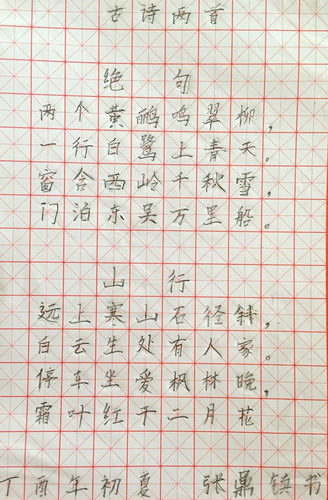 古诗两首
绝句
两个黄鹂鸣翠柳,
一行白鹭上青天。
窗含西岭千秋雪,
门泊东吴万里船。
山行
远上寒山石径斜,
白云生处有人家。
停车坐爱枫林晚,
霜叶红于二月花
丁酉年初夏 张鼎镇书